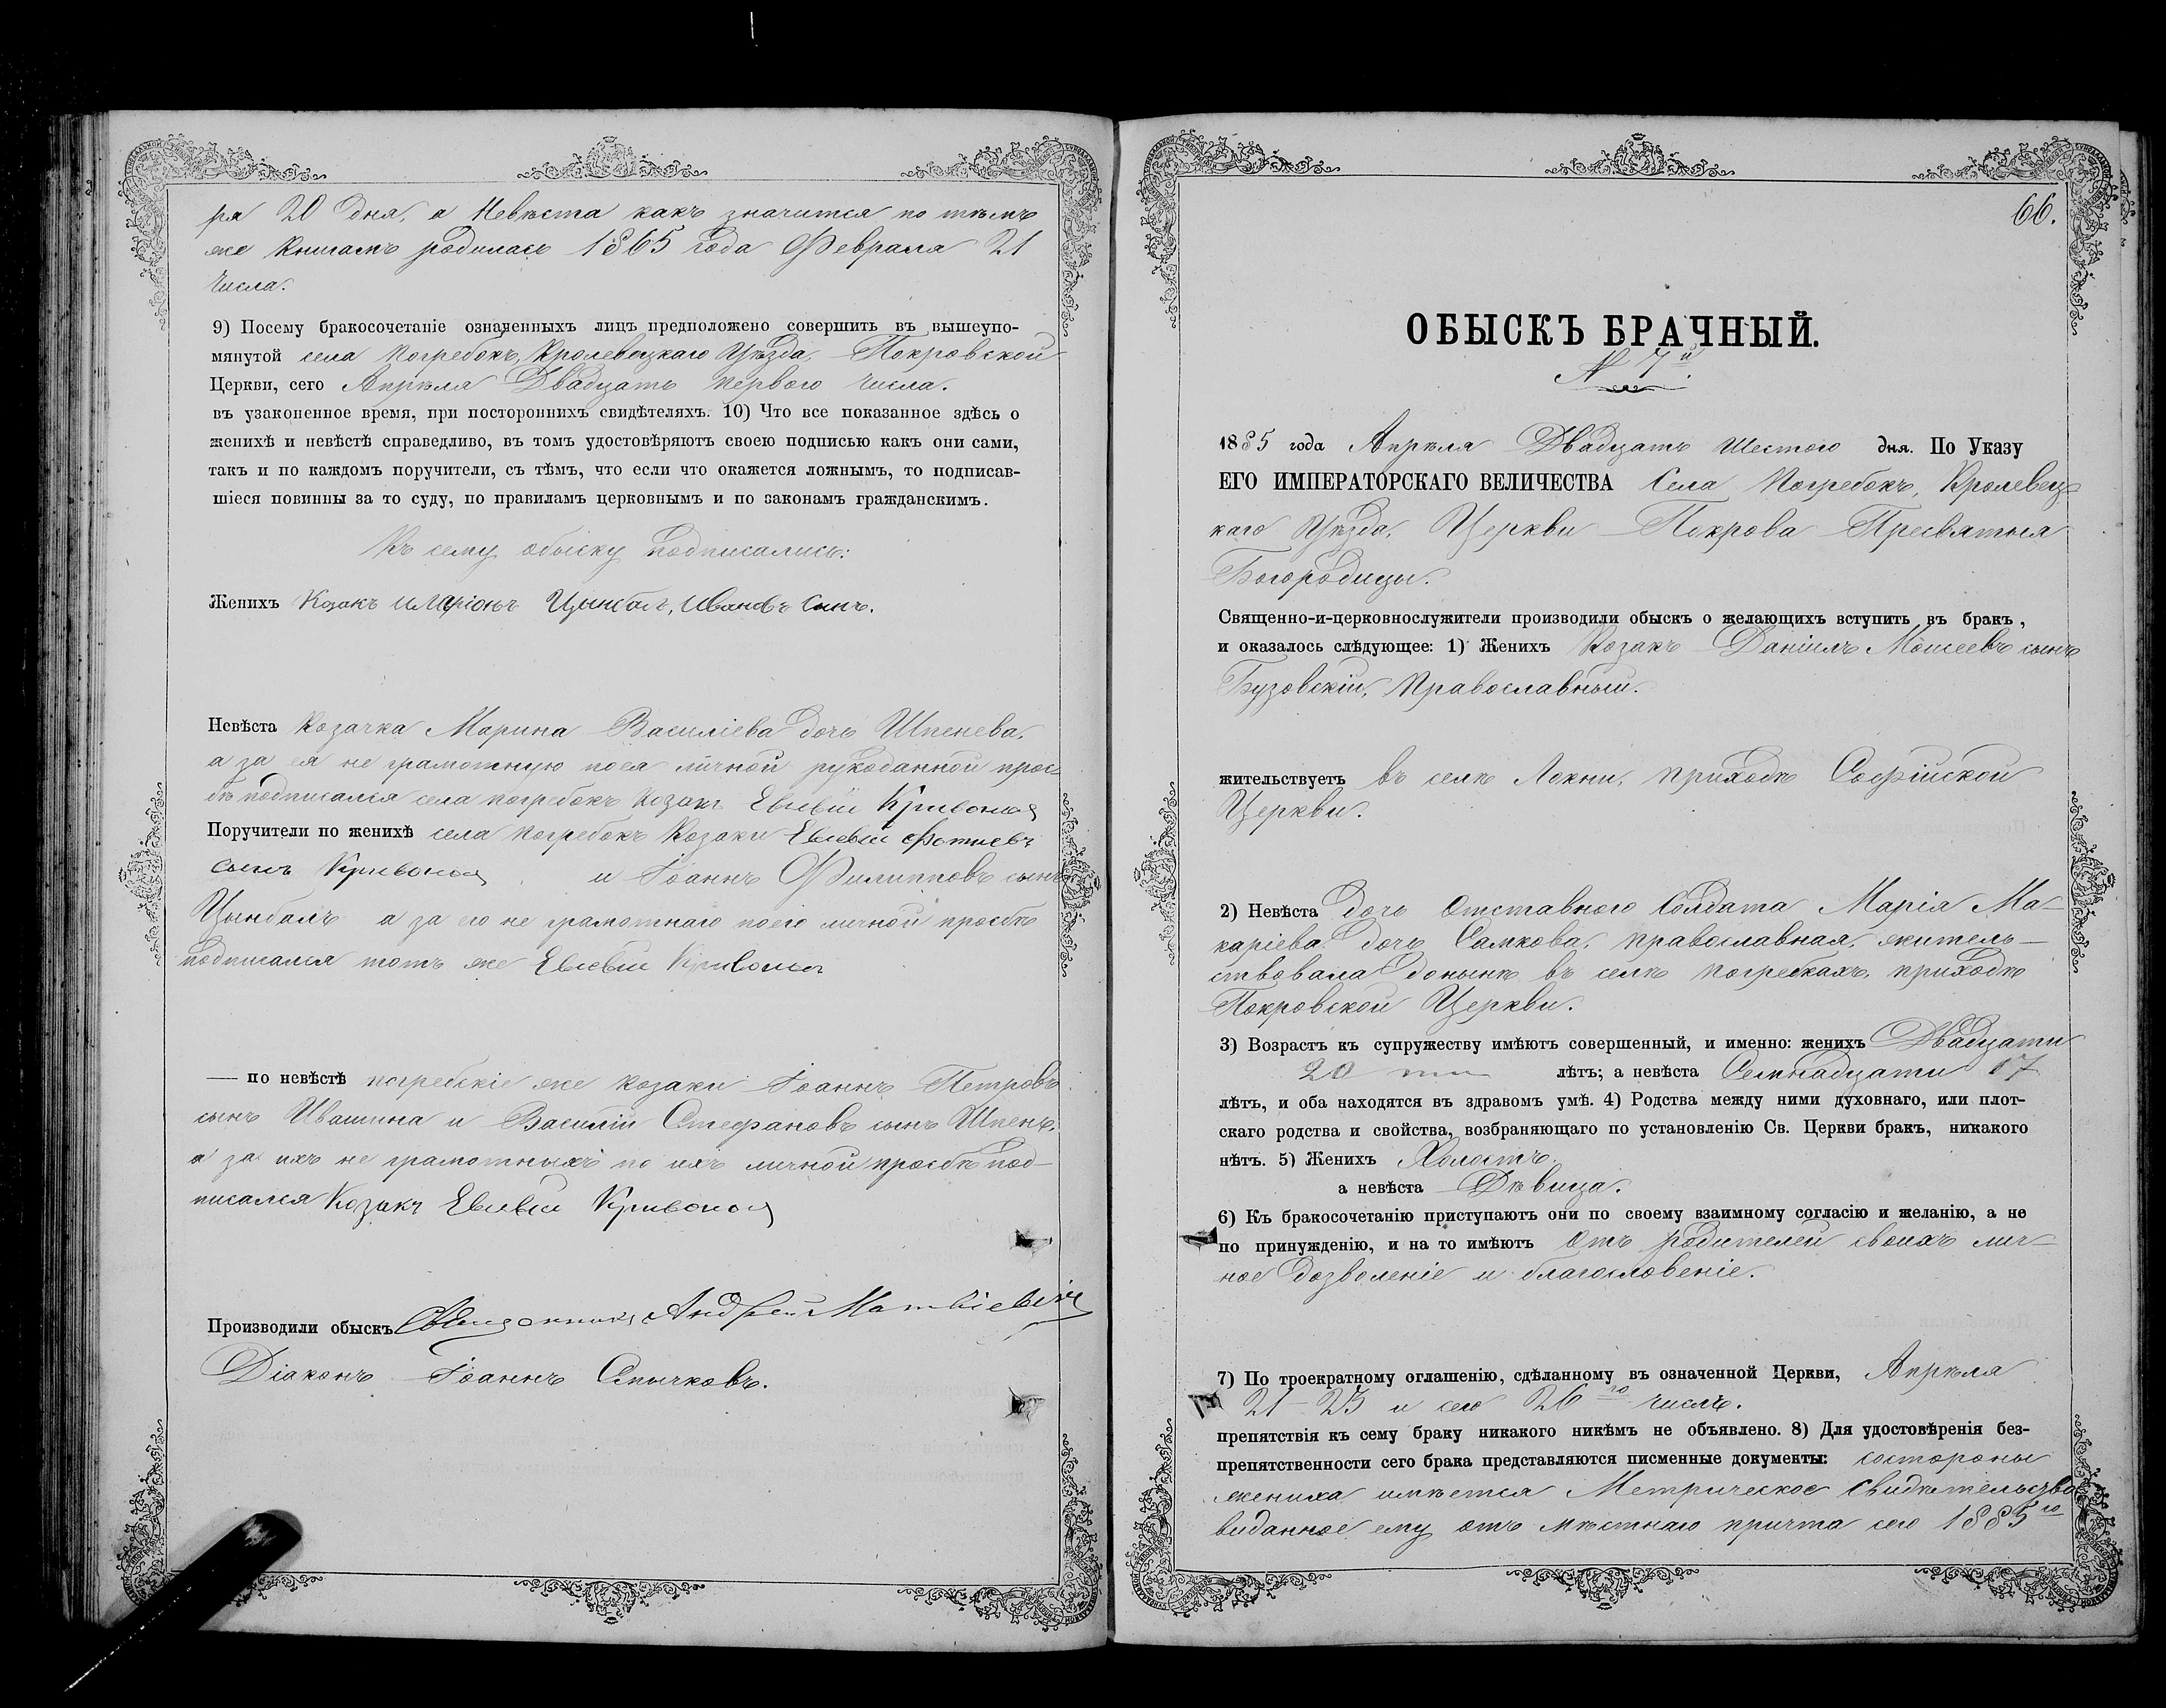 ря 20 дня, а Невѣста какъ значится по тѣмъ
же книгамъ родилась 1865 года Февраля 21
числа.
9) Посему бракосочетаніе означенныхъ лицъ предположено совершить въ вышеупо-
мянутой села Погребокъ, Кролевецкаго Уѣзда, Покровской
Церкви, сего Апрѣля Двадцать перваго числа.
въ узаконенное время, при постороннихъ свидѣтеляхъ. 10) Что все показанное здѣсь о
женихѣ и невѣстѣ справедливо, въ томъ удостовѣряютъ своею подписью какъ они сами,
такъ и по каждомъ поручители, съ тѣмъ, что если что окажется ложнымъ, то подписав-
шіеся повинны за то суду, по правиламъ церковнымъ и по законамъ гражданскимъ.
Къ сему обыску подписались:
Женихъ Козакъ Иларіонъ Цынбал, Ивановъ Сынъ.
Невѣста Козачка Марина Василіева дочь Шпенева,
а за ея не грамотную по ея личной рукоданной прось-
бѣ подписался села погребокъ Козакъ Кривонос
Поручители по женихѣ села погребокъ Козаки Фотиевъ
сынъ Кривонос и Іоаннъ Филипповъ сынъ
Цынбалъ а за его не грамотнаго по его личной просбѣ
подписался тотъ же Кривонос
— по невѣстѣ погребскіе же козаки Іоаннъ Петровъ
сынъ Ивашина и Василій Стефановъ сынъ Шпень,
а за ихъ не грамотныхъ по ихъ личной просбѣ под-
писался Козакъ Кривонос
Производили обыскъ Священникъ Андрей Маткіевичъ
Діаконъ Іоаннъ Спычковъ.
66.
ОБЫСКЪ БРАЧНЫЙ.
N 7й.
1885 года Апрѣля Двадцать Шестого дня. По Указу
ЕГО ИМПЕРАТОРСКАГО ВЕЛИЧЕСТВА Села Погребокъ, Кролевец-
каго Уѣзда, Церкви Покрова Пресвятыя
Богородицы.
Священно-и-церковнослужители производили обыскъ о желающихъ вступить въ бракъ,
и оказалось слѣдующее: 1) Женихъ Козакъ Даніилъ Моисеевъ сынъ
Бузовскій, Православный.
жительствуетъ въ селѣ Локни, приходѣ Софійской
Церкви.
2) Невѣста дочь Отставного Солдата Марія Ма-
каріева дочь Самкова, православная, житель-
ствовала донынѣ въ селѣ Погребкахъ, приходѣ
Покровской Церкви.
3) Возрастъ къ супружеству имѣютъ совершенный, и именно: женихъ Двадцати
20 ти лѣтъ; а невѣста Семнадцати 17
лѣтъ, и оба находятся въ здравомъ умѣ. 4) Родства между ними духовнаго, или плот-
скаго родства и свойства, возбраняющаго по установленію Св. Церкви бракъ, никакого
нѣтъ. 5) Женихъ Холостъ.
а невѣста Дѣвица.
6) Къ бракосочетанію приступаютъ они по своему взаимному согласію и желанію, а не
по принужденію, и на то имѣютъ Отъ родителей своихъ лич-
ное дозволеніе и благословеніе.
7) По троекратному оглашенію, сдѣланному въ означенной Церкви, Апрѣля
21 - 23 и сего 26го числъ.
препятствія къ сему браку никакого никѣмъ не объявлено. 8) Для удостовѣренія без-
препятственности сего брака представляются писменные документы: состороны
жениха имѣется Метрическое Свидѣтельство
виданное ему отъ мѣстнаго причта сего 1885го